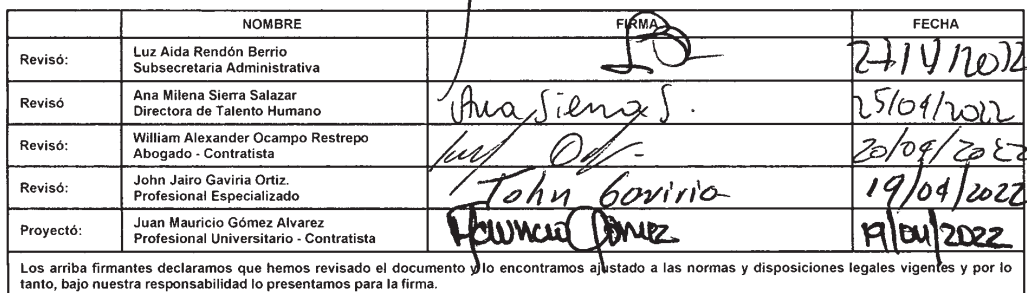 NOMBRE FIRMA FECHA
Revisó: Luz Aida Rendón Berrio
Subsecretaria Administrativa 27/IV/2022
Revisó Ana Milena Sierra Salazar
Directora de Talento Humano Ana Sierra S. 25/04/2022
Revisó: William Alexander Ocampo Restrepo
Abogado - Contratista 20/04/2022
Revisó: John Jairo Gaviria Ortiz.
Profesional Especializado John Gaviria 19/04/2022
Proyectó: Juan Mauricio Gómez Alvarez
Profesional Universitario - Contratista Mauricio Gómez 19/04/2022
Los arriba firmantes declaramos que hemos revisado el documento y lo encontramos ajustado a las normas y disposiciones legales vigentes y por lo
tanto, bajo nuestra responsabilidad lo presentamos para la firma.